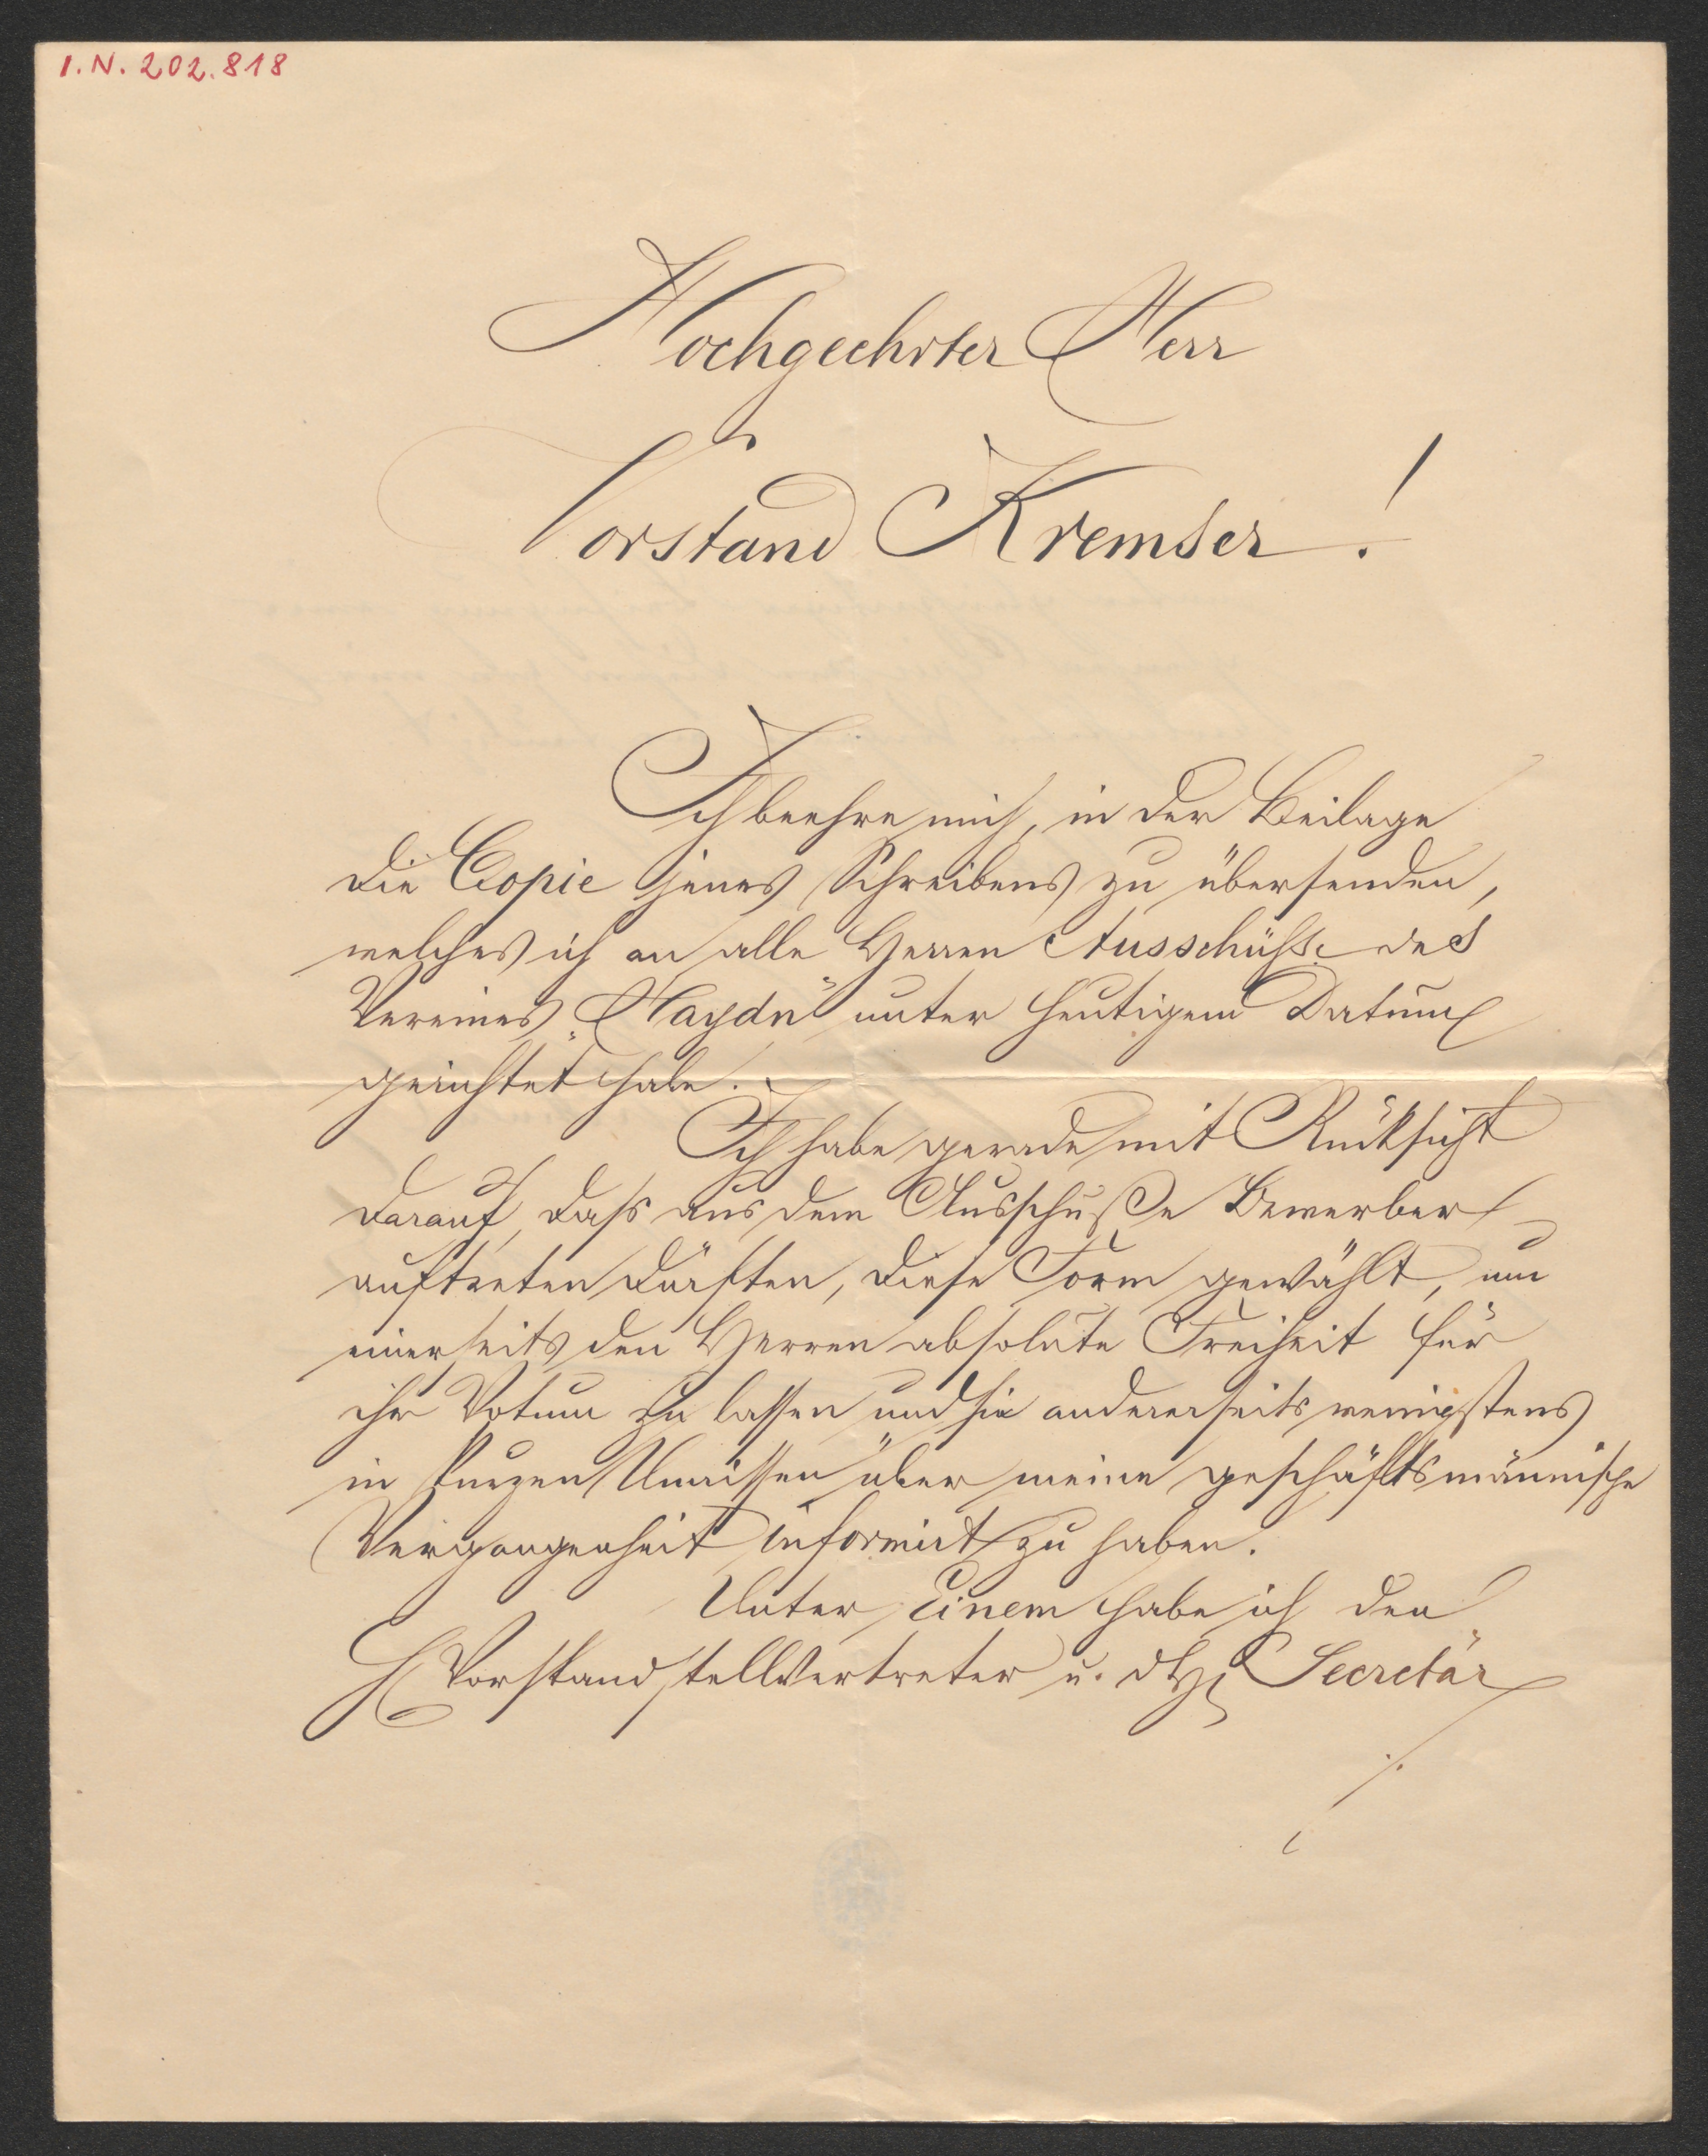 I.N. 202.818
Hochgeehrter Herr
Vorstand Kremser!
Ich beehre mich, in der Beilage
die Copie jenes Schreibens zu übersenden,
welches ich an alle Herren Ausschüße des
Vereines „Haydn" unter heutigem Datum
gerichtet habe.
Ich habe gerade mit Rücksicht
darauf, daß aus dem Ausschuße Bewerber
auftreten dürften, diese Form gewählt, um
einerseits den Herren absolute Freiheit für
ihr Votum zu lassen und sie andererseits wenigstens
in kurzen Umrissen über meine geschäftsmännische
Vergangenheit informirt zu haben.
Unter Einem habe ich den
H Vorstandstellvertreter u. d H Secretär
./.